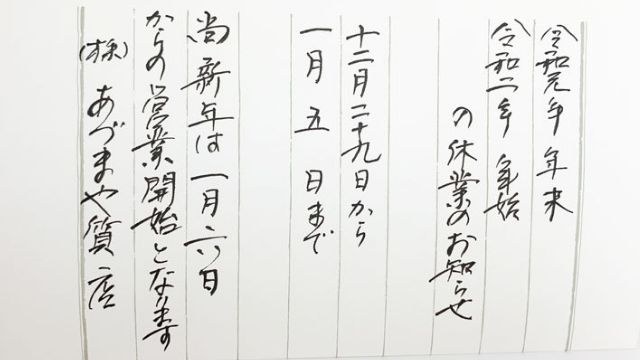 令和元年 年末
令和二年 年始
の休業のお知らせ
十二月二十九日から
一月五日まで
尚新年は一月六日
からの営業開始となります
(株)あづまや質店